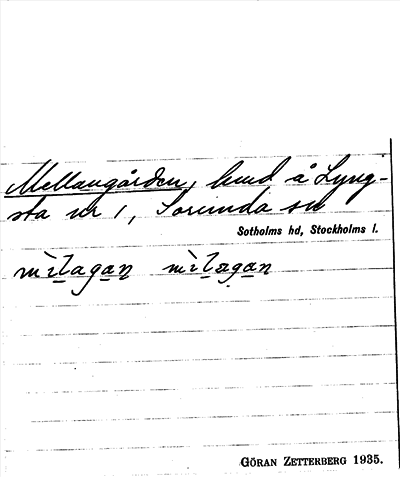 Mellangården, hmd å Lyng-
sta nr 1, Sorunda sn
Sotholms hd, Stockholms l.
GÖRAN ZETTERBERG 1935.